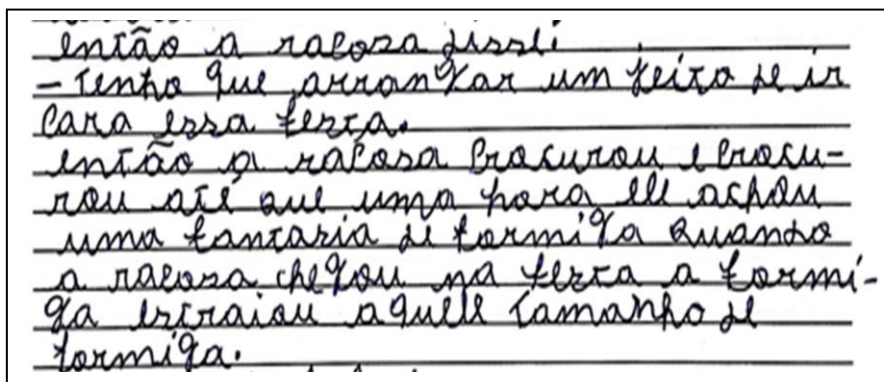 então a raposa disse:
- Tenho que arranjar um jeito de ir
para essa festa.
então a raposa procurou e procu-
rou até que uma hora ele achou
uma fantasia de formiga quando
a raposa chegou na festa a formi-
ga estraiou aquele tamanho de
formiga.